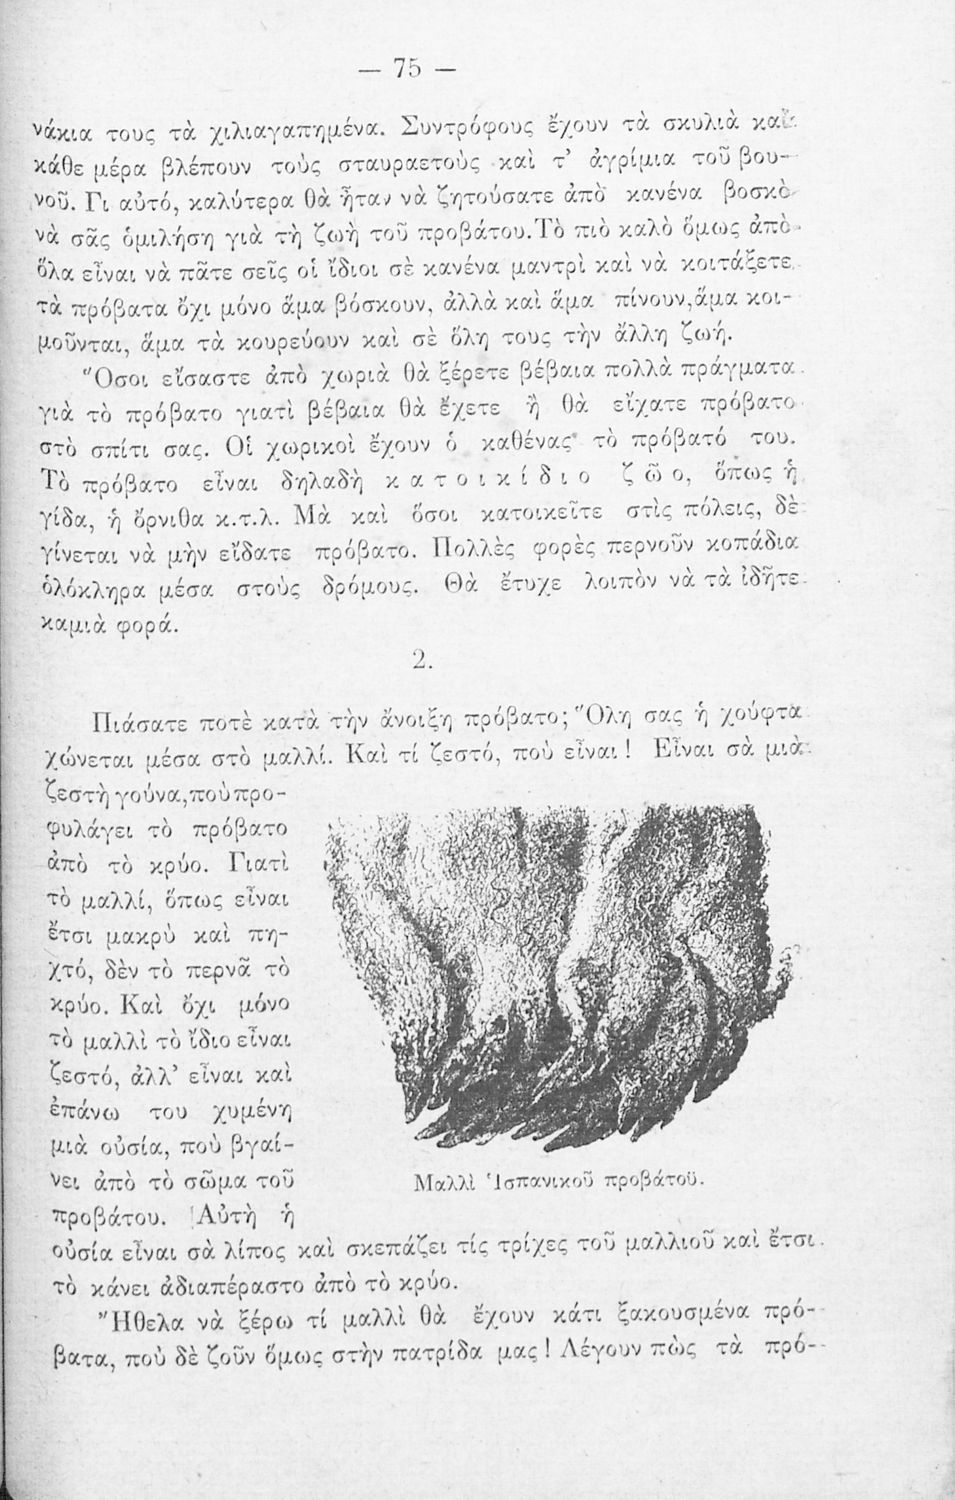 — 75 —
νάκια τους τὰ χιλιαγαπημένα. Συντρόφους ἔχουν τὰ σκυλιὰ καὶ
κάθε μέρα βλέπουν τοὺς σταυραετοὺς καὶ τ' ἀγρίμια τοῦ βου-
νοῦ. Γι αὐτό, καλύτερα θὰ ἦταν νὰ ζητούσατε ἀπὸ κανένα βοσκὸ
νὰ σᾶς ὁμιλήση γιὰ τὴ ζωὴ τοῦ προβάτου. Τὸ πιὸ καλὸ ὅμως ἀπὸ
ὅλα εἶναι νὰ πᾶτε σεῖς οἱ ἴδιοι σὲ κανένα μαντρὶ καὶ νὰ κοιτάξετε
τὰ πρόβατα ὄχι μόνο ἅμα βόσκουν, ἀλλὰ καὶ ἅμα πίνουν, ἅμα κοι-
μοῦνται, ἅμα τὰ κουρεύουν καὶ σὲ ὅλη τους τὴν ἄλλη ζωή.
Ὅσοι εἴσαστε ἀπὸ χωριὰ θὰ ξέρετε βέβαια πολλὰ πράγματα
γιὰ τὸ πρόβατο γιατὶ βέβαια θὰ ἔχετε ἢ θὰ εἴχατε πρόβατο
στὸ σπίτι σας. Οἱ χωρικοὶ ἔχουν ὁ καθένας τὸ πρόβατό του.
Τὸ πρόβατο εἶναι δηλαδὴ κ α τ ο ι κ ί δ ι ο ζ ῶ ο, ὅπως ἡ
γίδα, ἡ ὄρνιθα κ.τ.λ. Μὰ καὶ ὅσοι κατοικεῖτε στὶς πόλεις, δὲ
γίνεται νὰ μὴν εἴδατε πρόβατο. Πολλὲς φορὲς περνοῦν κοπάδια
ὁλόκληρα μέσα στοὺς δρόμους. Θὰ ἔτυχε λοιπὸν νὰ τὰ ἰδῆτε
καμιὰ φορά.
2.
Πιάσατε ποτὲ κατὰ τὴν ἄνοιξη πρόβατο; Ὅλη σας ἡ χούφτα
χώνεται μέσα στὸ μαλλί. Καὶ τί ζεστό, ποὺ εἶναι! Εἶναι σὰ μιὰ
ζεστὴ γούνα, ποὺ προ-
φυλάγει τὸ πρόβατο
ἀπὸ τὸ κρύο. Γιατὶ
τὸ μαλλί, ὅπως εἶναι
ἔτσι μακρὺ καὶ πη-
χτό, δὲν τὸ περνᾶ τὸ
κρύο. Καὶ ὄχι μόνο
τὸ μαλλὶ τὸ ἴδιο εἶναι
ζεστό, ἀλλ' εἶναι καὶ
ἐπάνω του χυμένη
μιὰ οὐσία, ποὺ βγαί-
νει ἀπὸ τὸ σῶμα τοῦ
προβάτου. Αὐτὴ ἡ
οὐσία εἶναι σὰ λίπος καὶ σκεπάζει τίς τρίχες τοῦ μαλλιοῦ καὶ ἔτσι
τὸ κάνει ἀδιαπέραστο ἀπὸ τὸ κρύο.
Μαλλὶ Ἱσπανικοῦ προβάτου.
Ἤθελα νὰ ξέρω τί μαλλὶ θὰ ἔχουν κάτι ξακουσμένα πρό-
βατα, ποὺ δὲ ζοῦν ὅμως στὴν πατρίδα μας! Λέγουν πὼς τὰ πρό-